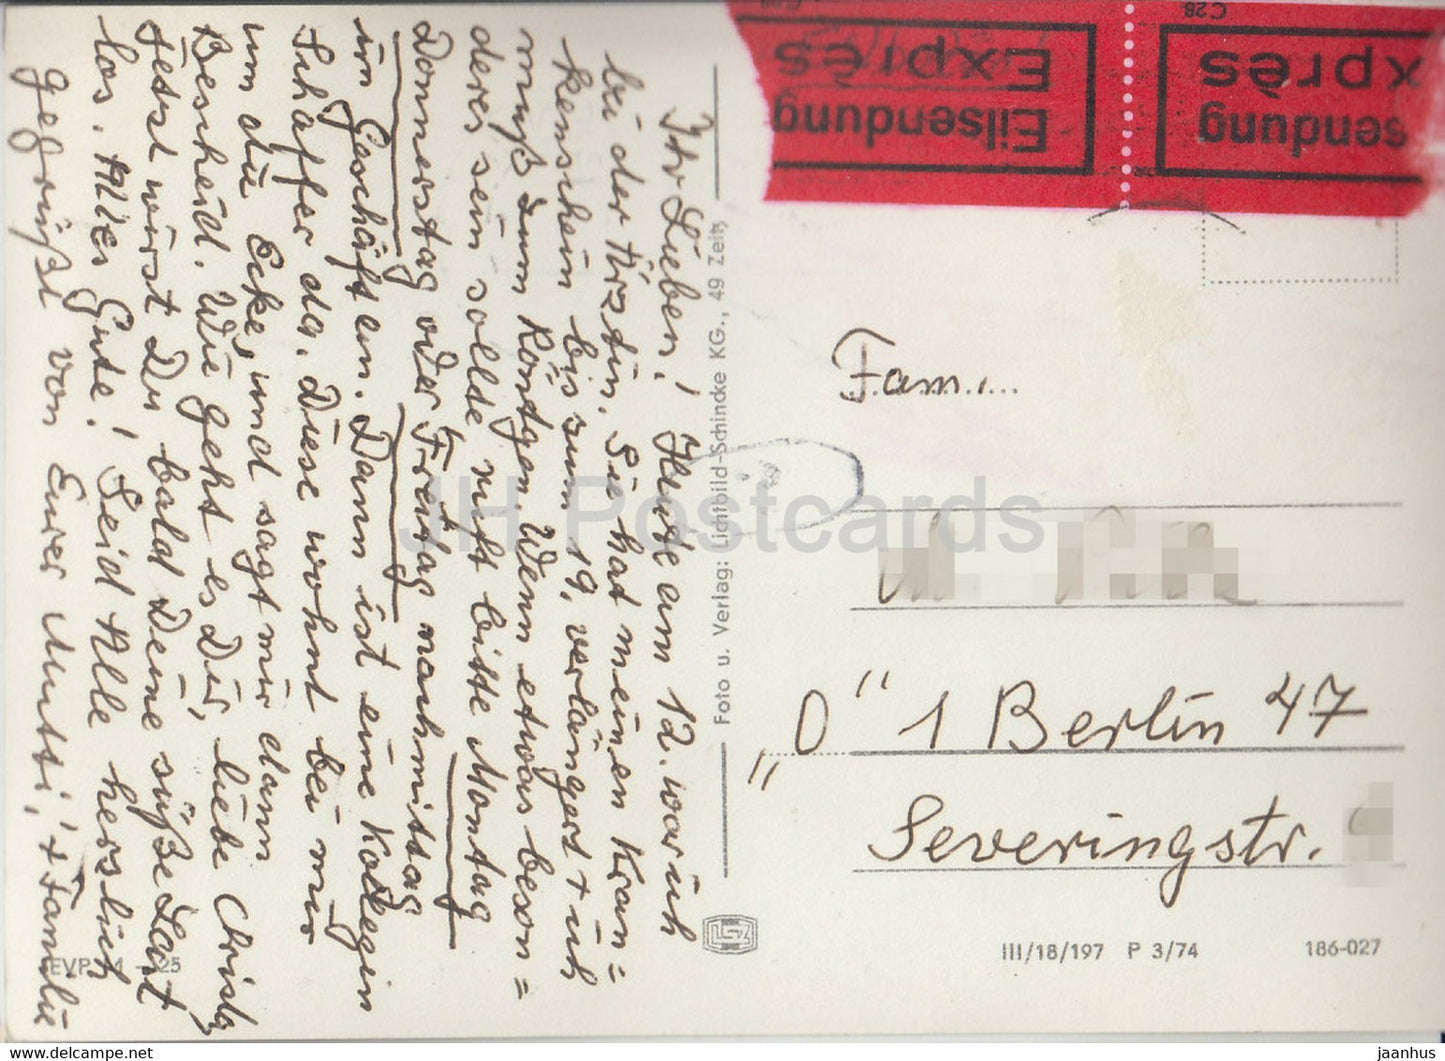 Ihr Lieben! Heute am 12. war ich
bei der Ärztin. Sie hat meinen Kran=
kenschein bis zum 19. verlängert + ich
muß zum Röntgen. Wenn etwas beson=
deres sein sollte ruft bitte Montag
Donnerstag oder Freitag nachmittag
im Geschäft an. Dann ist eine Kollegin
Schaffer da. Diese wohnt bei mir
um die Ecke, und sagt mir dann
Bescheid. Wie geht es Dir, liebe Christa
Jetzt wirst Du bald Deine süße Last
los. Alles Gute! Seid Alle herzlich
gegrüßt von Eurer Mutti, + Familie
EVP
25
Foto u. Verlag: Lichtbild-Schincke KG., 49 Zeitz
Eilsendung
Exprès
sendung
xprès
C 28
Fam....
"D" 1 Berlin 47
Severingstr.
III/18/197 P 3/74 186-027
JH Postcards
https://www.jaanhus.ee
jaanhus.ee